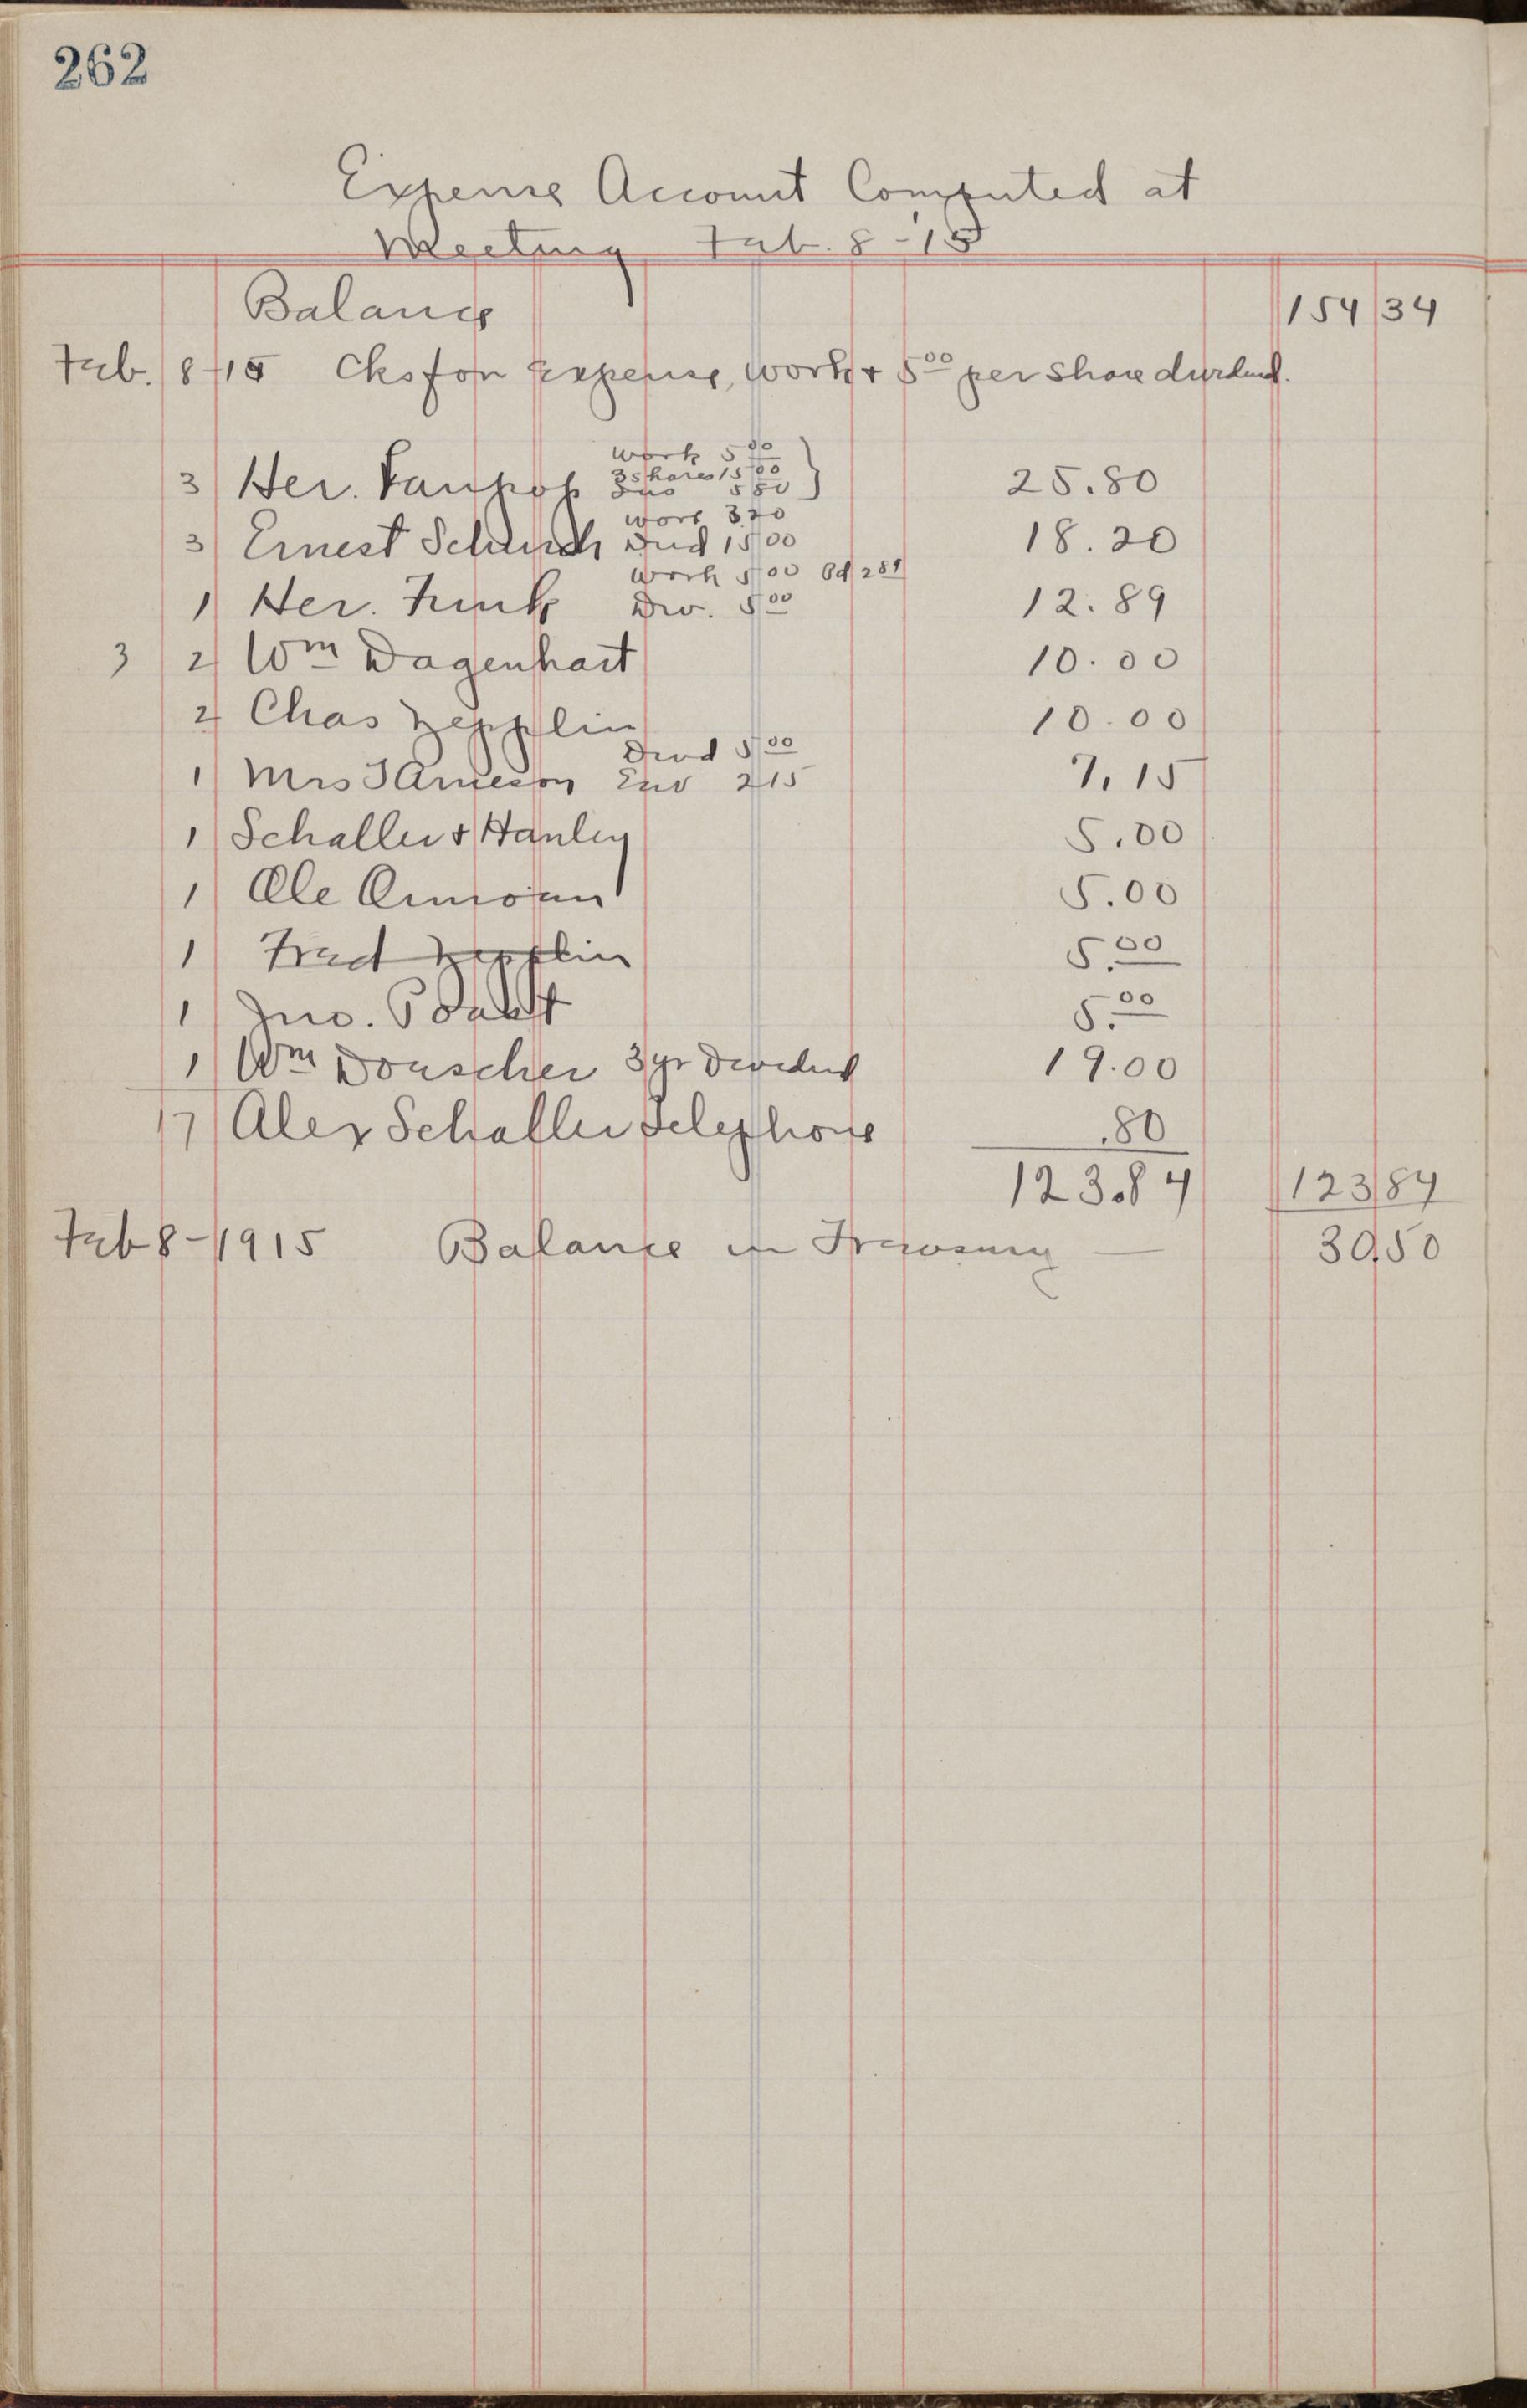 262
Expense Account Computed at
Meeting Feb. 8-'15
Balance 154 34
Feb. 8-15 Cks for Expense, work + 5 00 per share dividend.
work 5 00
3 shares 15 00
3 Her. 5 80 25.80
work 3 20
3 Ernest Schurch Divd 15 00 18.20
work 5 00 Pd 2 89
1 Her. Funk Div. 5 00 12.89
3 2 Wm Dagenhart 10.00
2 Chas Zepplin 10.00
Divd 5 00
1 Mrs Jameson 2 15 7.15
1 Schaller + Hanley 5.00
1 Ole 5.00
1 Fred Zepplin 5.00
1 Jno. 5.00
1 Wm Douscher 3 yr Dividend 19.00
17 Alex Schaller Telephone .80
123.84 123 84
Feb 8-1915 Balance in Treasury — 30.50